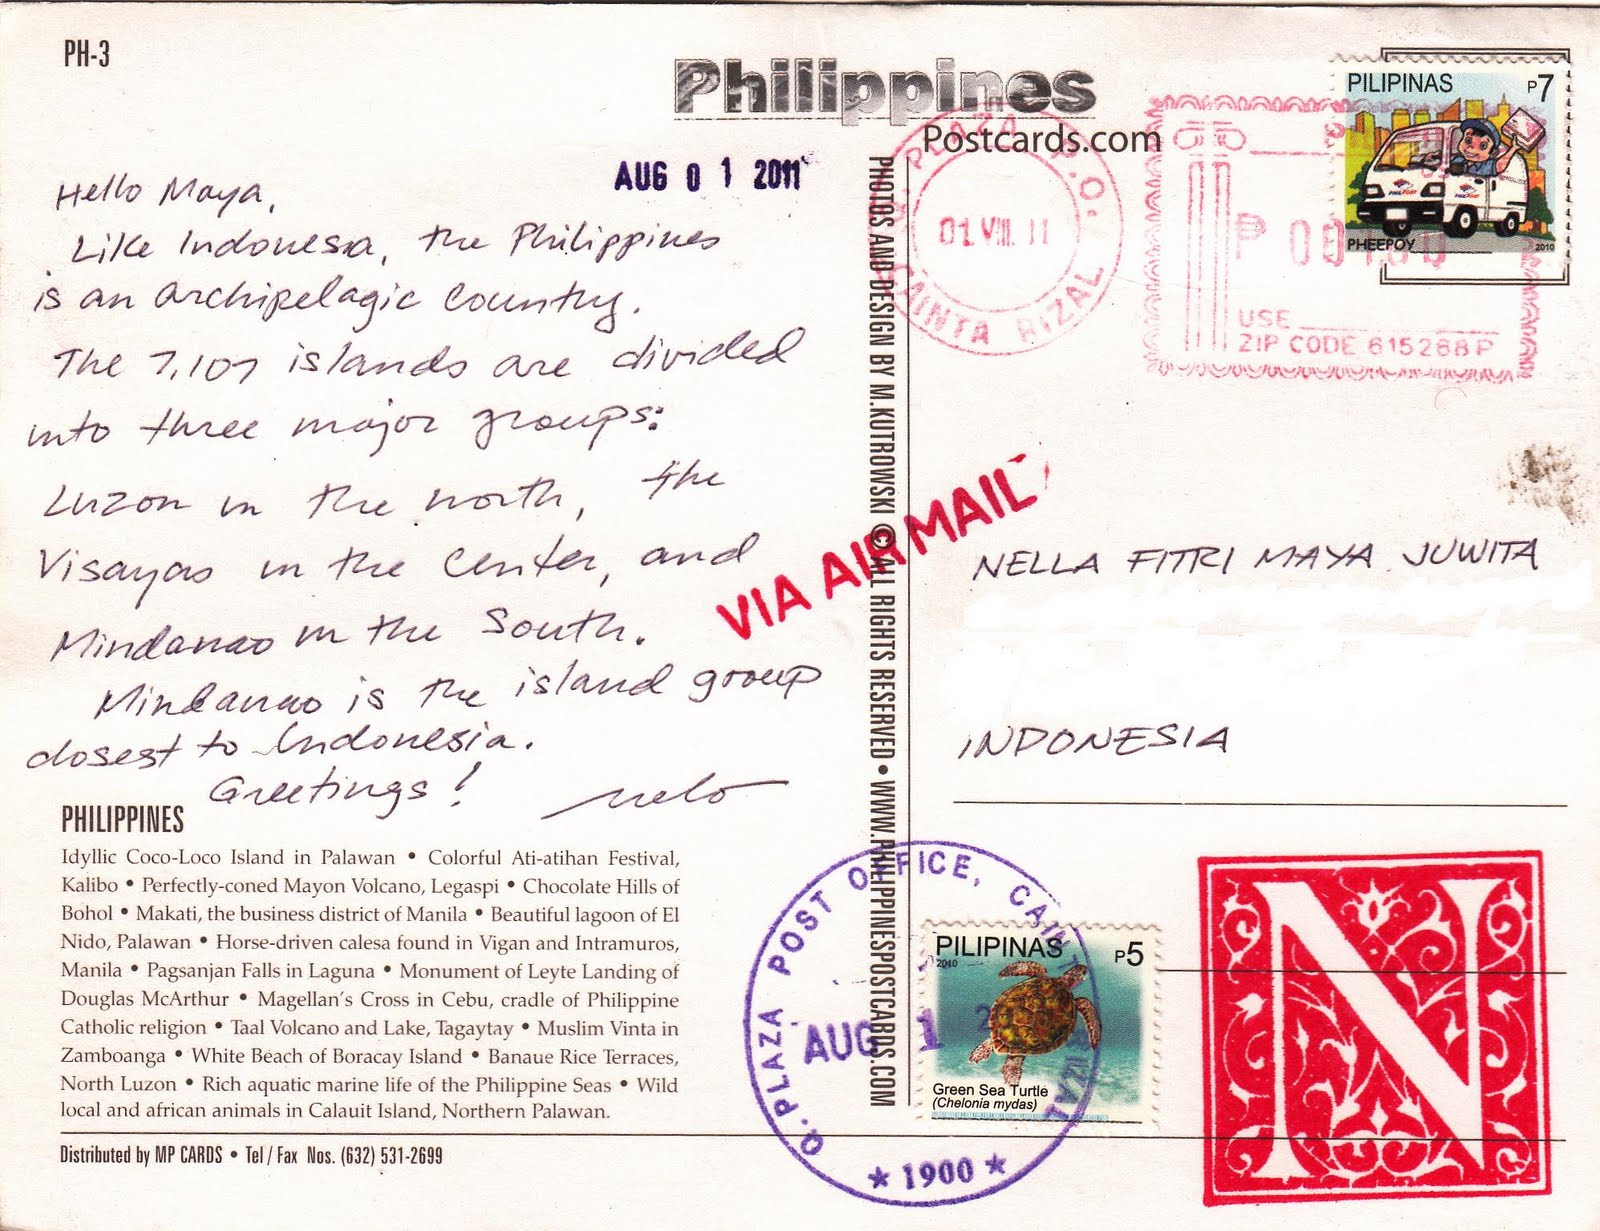 PH-3
Philippines
Postcards.com
AUG 01 2011
Hello Maya,
Like Indonesia, the Philippines
is an archipelagic country.
The 7,107 islands are divided
into three major groups:
Luzon in the north, the
Visayas in the center, and
Mindanao in the South.
Mindanao is the island group
closest to Indonesia.
Greetings!
PHILIPPINES
Idyllic Coco-Loco Island in Palawan • Colorful Ati-atihan Festival,
Kalibo • Perfectly-coned Mayon Volcano, Legaspi • Chocolate Hills of
Bohol • Makati, the business district of Manila • Beautiful lagoon of El
Nido, Palawan • Horse-driven calesa found in Vigan and Intramuros,
Manila • Pagsanjan Falls in Laguna • Monument of Leyte Landing of
Douglas McArthur • Magellan's Cross in Cebu, cradle of Philippine
Catholic religion • Taal Volcano and Lake, Tagaytay • Muslim Vinta in
Zamboanga • White Beach of Boracay Island • Banaue Rice Terraces,
North Luzon • Rich aquatic marine life of the Philippine Seas • Wild
local and african animals in Calauit Island, Northern Palawan.
Distributed by MP CARDS • Tel / Fax Nos. (632) 531-2699
PHOTOS AND DESIGN BY M.KUTROWSKI © ALL RIGHTS RESERVED • WWW.PHILIPPINESPOSTCARDS.COM
PLAZA P.O.
01 VIII 11
CAINTA RIZAL
USE
ZIP CODE 615268P
PILIPINAS P7
PHEEPOY 2010
VIA AIR MAIL
NELLA FITRI MAYA JUWITA
INDONESIA
Q. PLAZA POST OFFICE, CAINTA RIZAL
AUG 1
★ 1900 ★
PILIPINAS P5
2010
Green Sea Turtle
(Chelonia mydas)
N